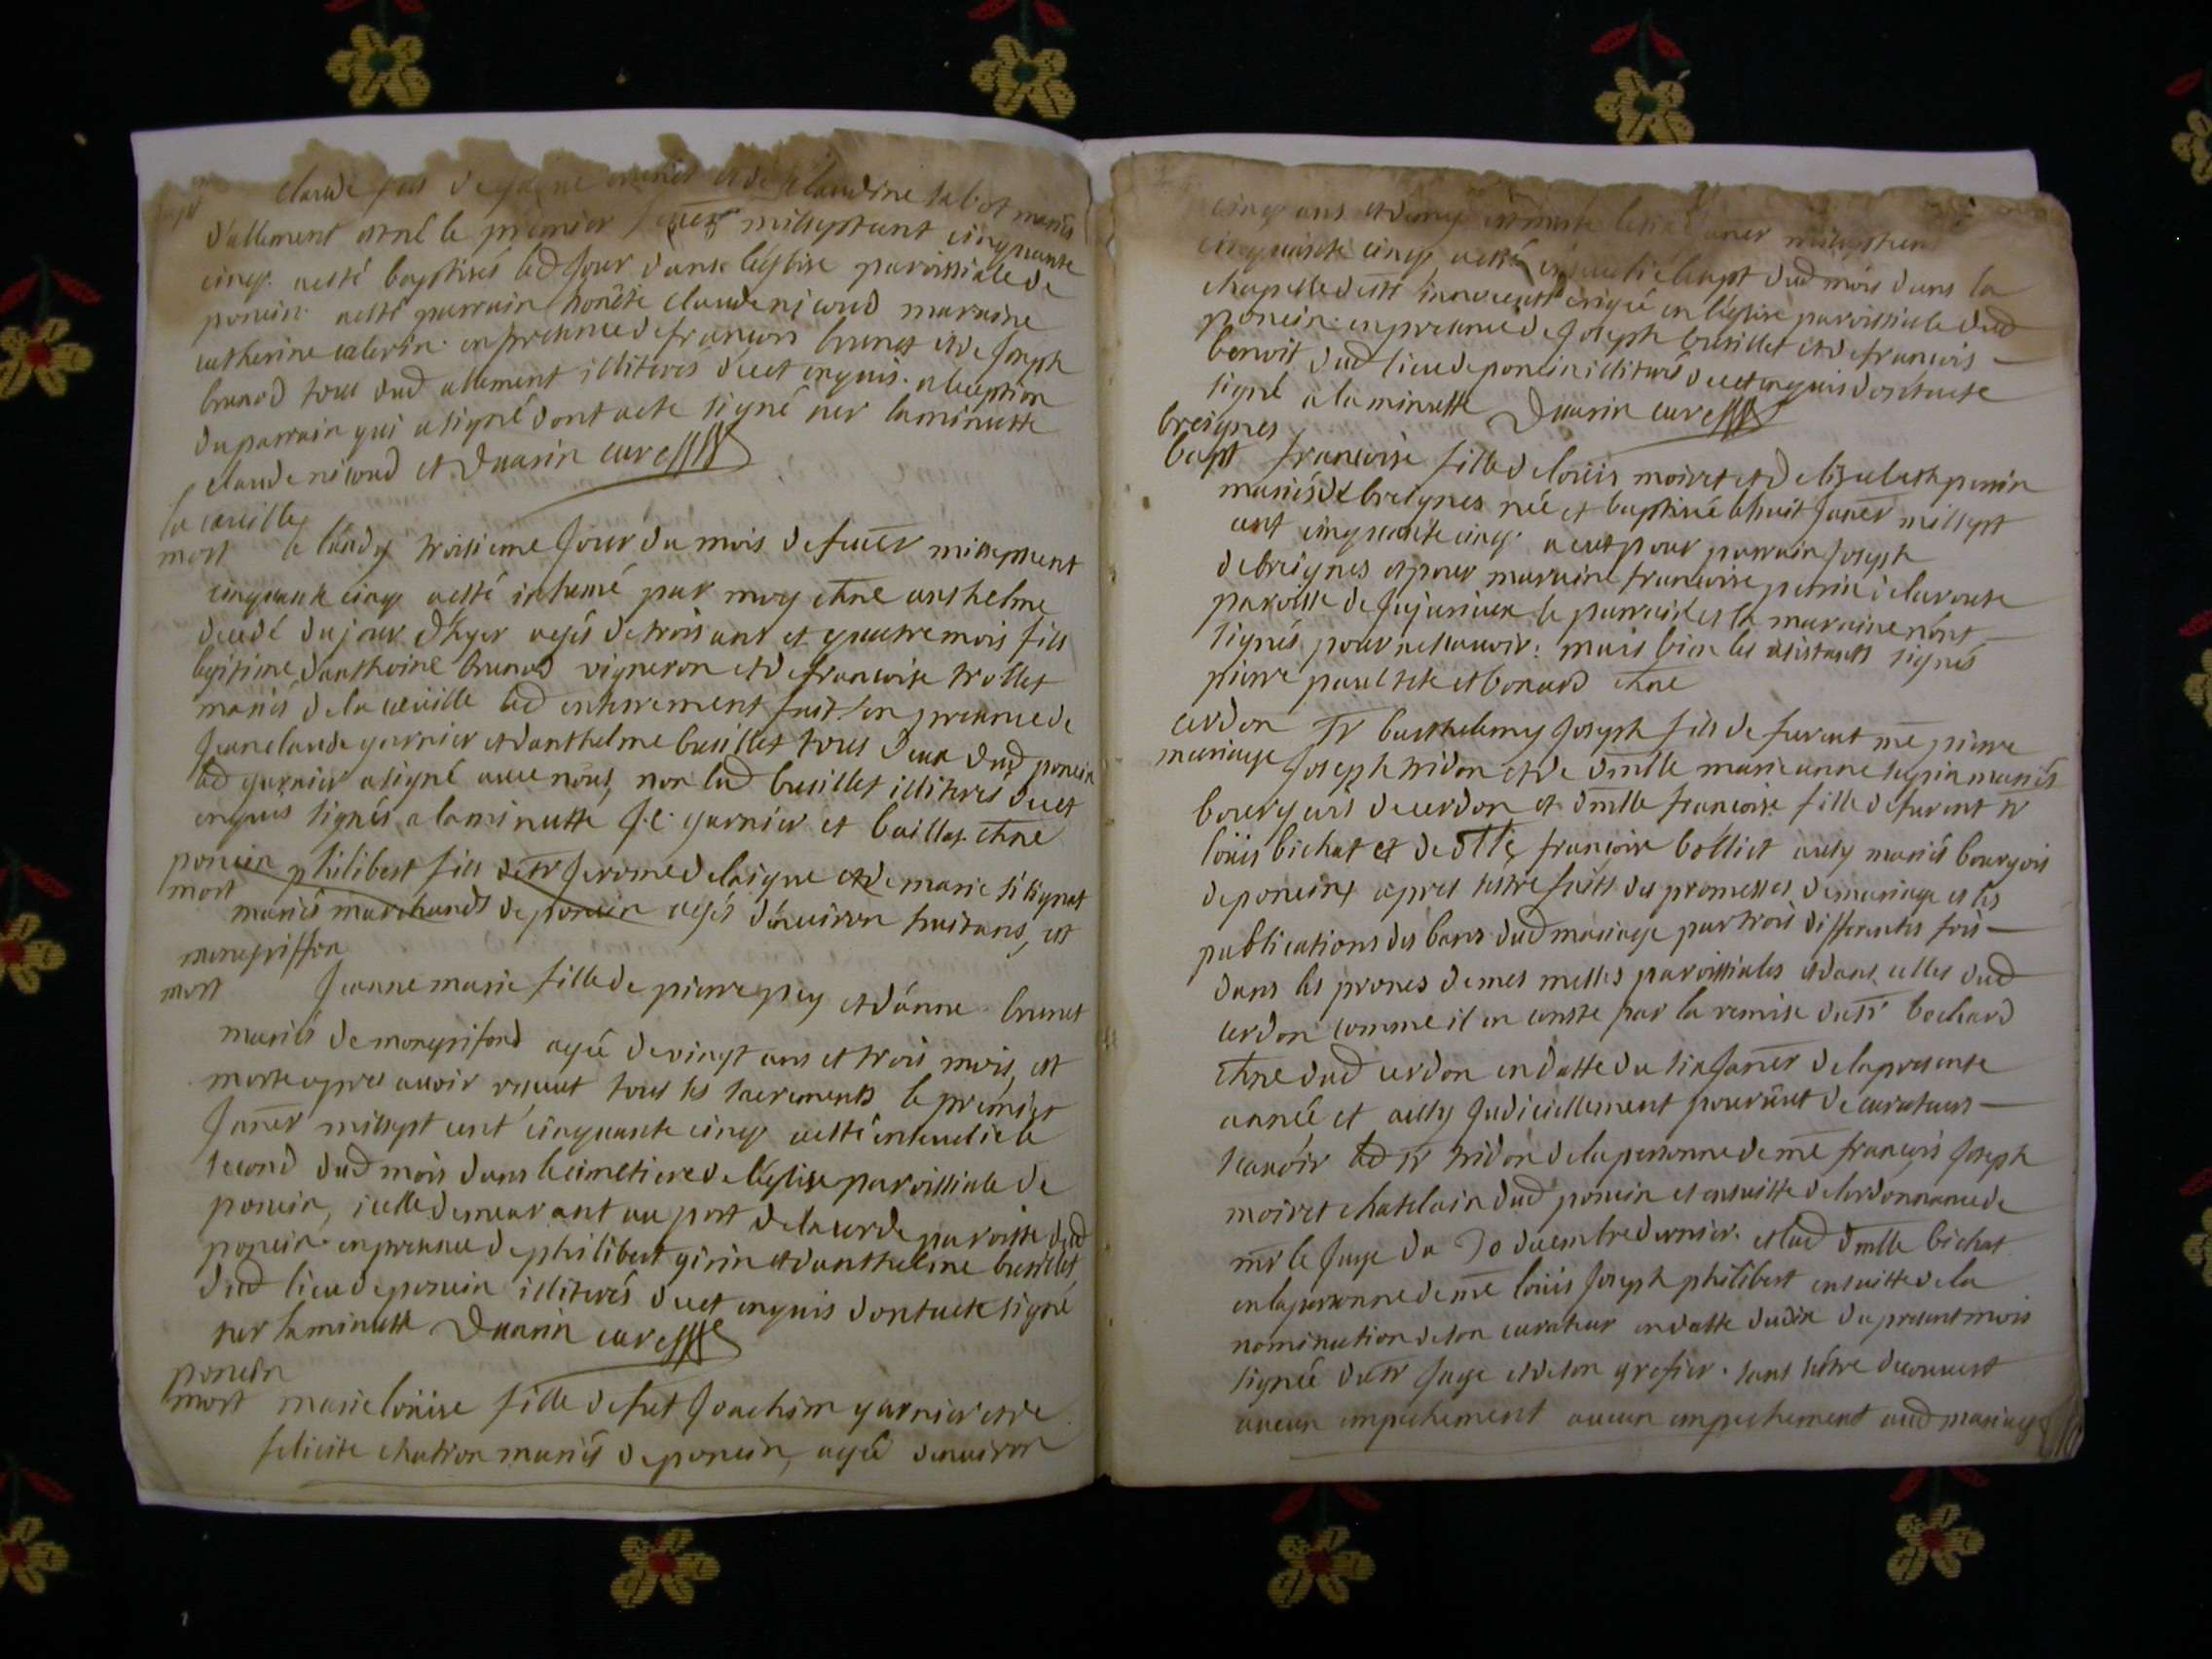 claude fils de brunet et de claudine sabot mariés
d'allement est né le premier feuer millseptcent cinquante
cinq. aesté baptisés led Jour dans léglise paroissiale de
poncin. aesté parrain honête claude nicoud maraine
catherine en presence de francois brunet et de Joseph
brunod tous dud allement illiterés duet enquis. alexeption
du parrain qui a signé dont acte signé sur la minutte
claude nicoud et Duarin curé
la cueille
mort le lundy troisieme Jour du mois de feuer millseptcent
cinquante cinq aesté inhumé par moy anthelme
decedé du jour d'hyer agés de trois ans et quattre mois fils
legitime d'anthoine brunod vigneron et de francoise trollet
mariés de la cueille led enterrement fait en presence de
Jean claude garnier et d'anthelme busillet tous deux dud poncin
led garnier a signé auec nous, non led busillet illiterés duet
enquis signés a la minutte J.C. garnier et
poncin
mort philibert fils de sr Jerome delaigue et de marie silignat
mariés marchands de poncin agés d'enuiron huit ans, est
mongriffon
mort Jeanne marie fille de pierre pey et d'anne brunet
mariés de mongrifond agée de vingt ans et trois mois, est
morte apres auoir receut tous les sacrements le premier
Janer millsept cent cinquante cinq aesté enseuelie le
second dud mois dans le cimetiere de l'église paroissiale de
poncin, icelle demeurant au port de la cerde paroisse dud
poncin en presence de philibert girin et d'anthelme busillet,
dud lieu de poncin illiterés duet enquis dont acte signé
sur la minutte Duarin curé
poncin
mort marie loüise fille de feut Joachim garnier et de
felicite chatron mariés de poncin, agée denuiron
cinq ans et demy est morte le Janer millsept cen
cinquante cinq aesté enseuelie le sept dud mois dans la
chapelle des sts innocents erigée en l'église paroissiale dud
poncin en presence de Joseph busillet et de francois
benoit dud lieu de poncin illiterés duet enquis dont acte
signé a la minutte Duarin curé
breignes
bapt francoise fille de loüis moiret et d elizabeth perrin
mariés de breignes née et baptisée le huit Janer millsept
cent cinquante cinq. a eut pour parrain Joseph
de breignes et pour maraine francoise perrin de la route
paroisse de Jujurieux le parrain et la maraine n'ont
signés pour ne sauoir: mais bien les assistants signés
pierre paul tete et bonard
cerdon
mariage sr barthelemy Joseph fils de furent me pierre
Joseph tridon et de dmlle marie anne mariés
bourgeois de cerdon et dmlle francoise fille de furent sr
loüis bichat et de dlle francoise bolliet aussy mariés bourgois
de poncin, apres s'estre faits des promesses de mariage et les
publications des bans dud mariage par trois differentes fois
dans les prones de mes messes paroissiales et dans celles dud
cerdon comme il en conste par la remise du sr bochard
dud cerdon en datte du six Janer de la presente
année et aussy Judiciellement pourüut de curateurs
scauoir led sr tridon de la personne de me francois Joseph
moiret chatelain dud poncin et ensuitte de l'ordonnance de
mr le Juge du 30 decembre dernier. et lad dmlle bichat
en la personne de me loüis Joseph philibert ensuitte de la
nomination de son curateur en datte du dix du present mois
signée du sr Juge et de son grefier. sans s'être decouuert
aucun empechement aucun empechement aud mariage